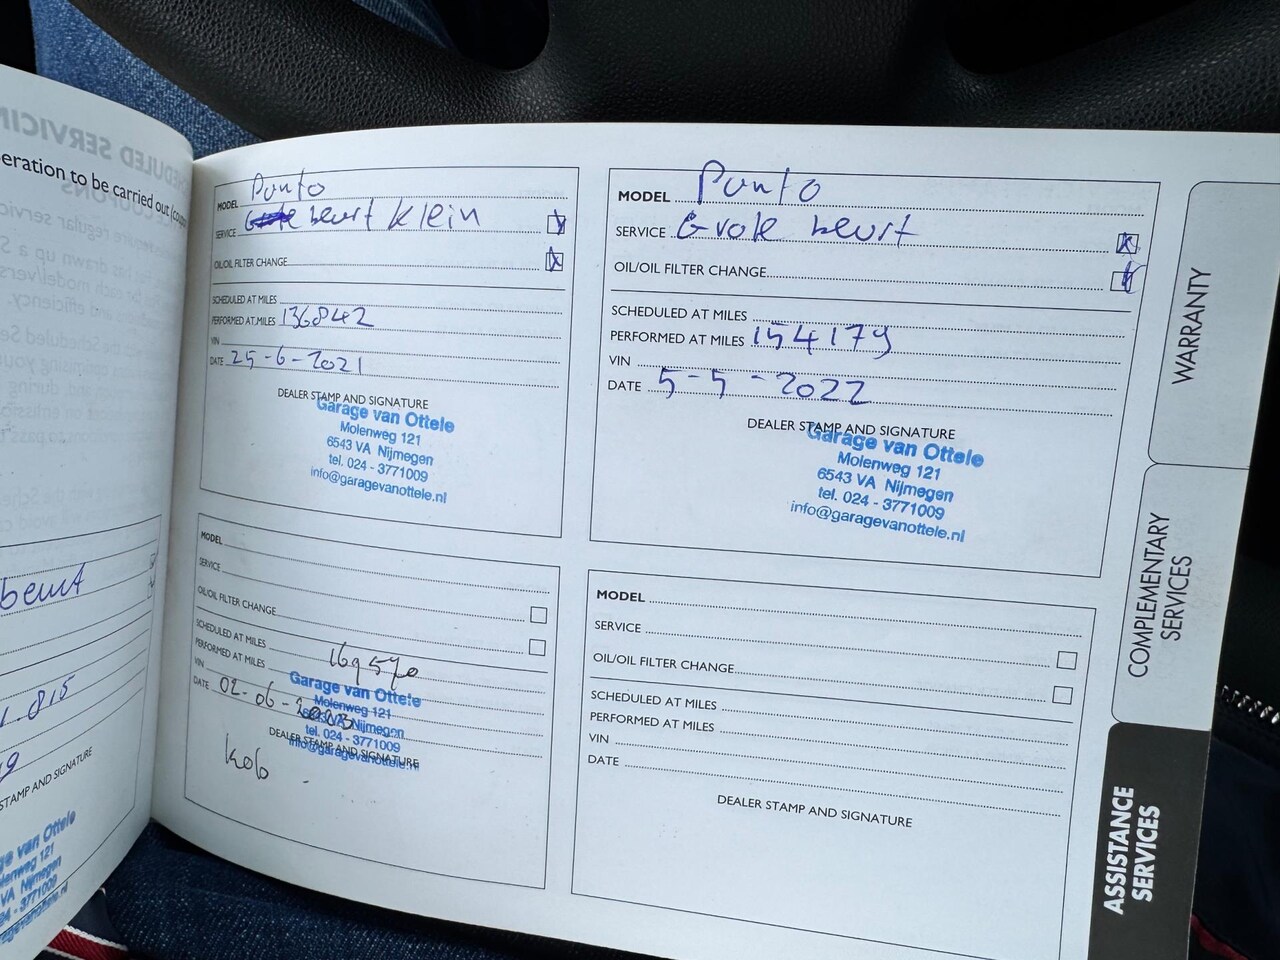 SCHEDULED SERVICING
COUPONS
eration to be carried out (coup
beurt
1.815
STAMP AND SIGNATURE
ge van Ottele
lenweg 121
VA Nijmegen
24 - 3771009
ragevanottele.nl
MODEL Punto
SERVICE Grote beurt klein
OIL/OIL FILTER CHANGE
SCHEDULED AT MILES
PERFORMED AT MILES 136842
VIN
DATE 25-6-2021
DEALER STAMP AND SIGNATURE
Garage van Ottele
Molenweg 121
6543 VA Nijmegen
tel. 024 - 3771009
info@garagevanottele.nl
MODEL Punto
SERVICE Grote beurt
OIL/OIL FILTER CHANGE
SCHEDULED AT MILES
PERFORMED AT MILES 154179
VIN
DATE 5-5-2022
DEALER STAMP AND SIGNATURE
Garage van Ottele
Molenweg 121
6543 VA Nijmegen
tel. 024 - 3771009
info@garagevanottele.nl
MODEL
SERVICE
OIL/OIL FILTER CHANGE
SCHEDULED AT MILES
PERFORMED AT MILES 169570
VIN
DATE 02-06-2023
DEALER STAMP AND SIGNATURE
Garage van Ottele
Molenweg 121
6543 VA Nijmegen
tel. 024 - 3771009
info@garagevanottele.nl
Kob
MODEL
SERVICE
OIL/OIL FILTER CHANGE
SCHEDULED AT MILES
PERFORMED AT MILES
VIN
DATE
DEALER STAMP AND SIGNATURE
WARRANTY
COMPLEMENTARY
SERVICES
ASSISTANCE
SERVICES